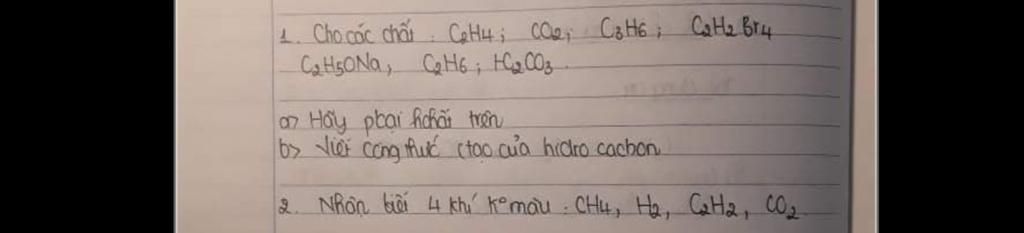 1. Cho các chất : C2H4; CO2; C3H6; C2H2Br4
C2H5ONa, C2H6; H2CO3.
a> Hãy ploại hchất trên
b> Viết công thức ctạo của hidro cacbon
2. Nhận biết 4 khí k° màu : CH4, H2, C2H2, CO2